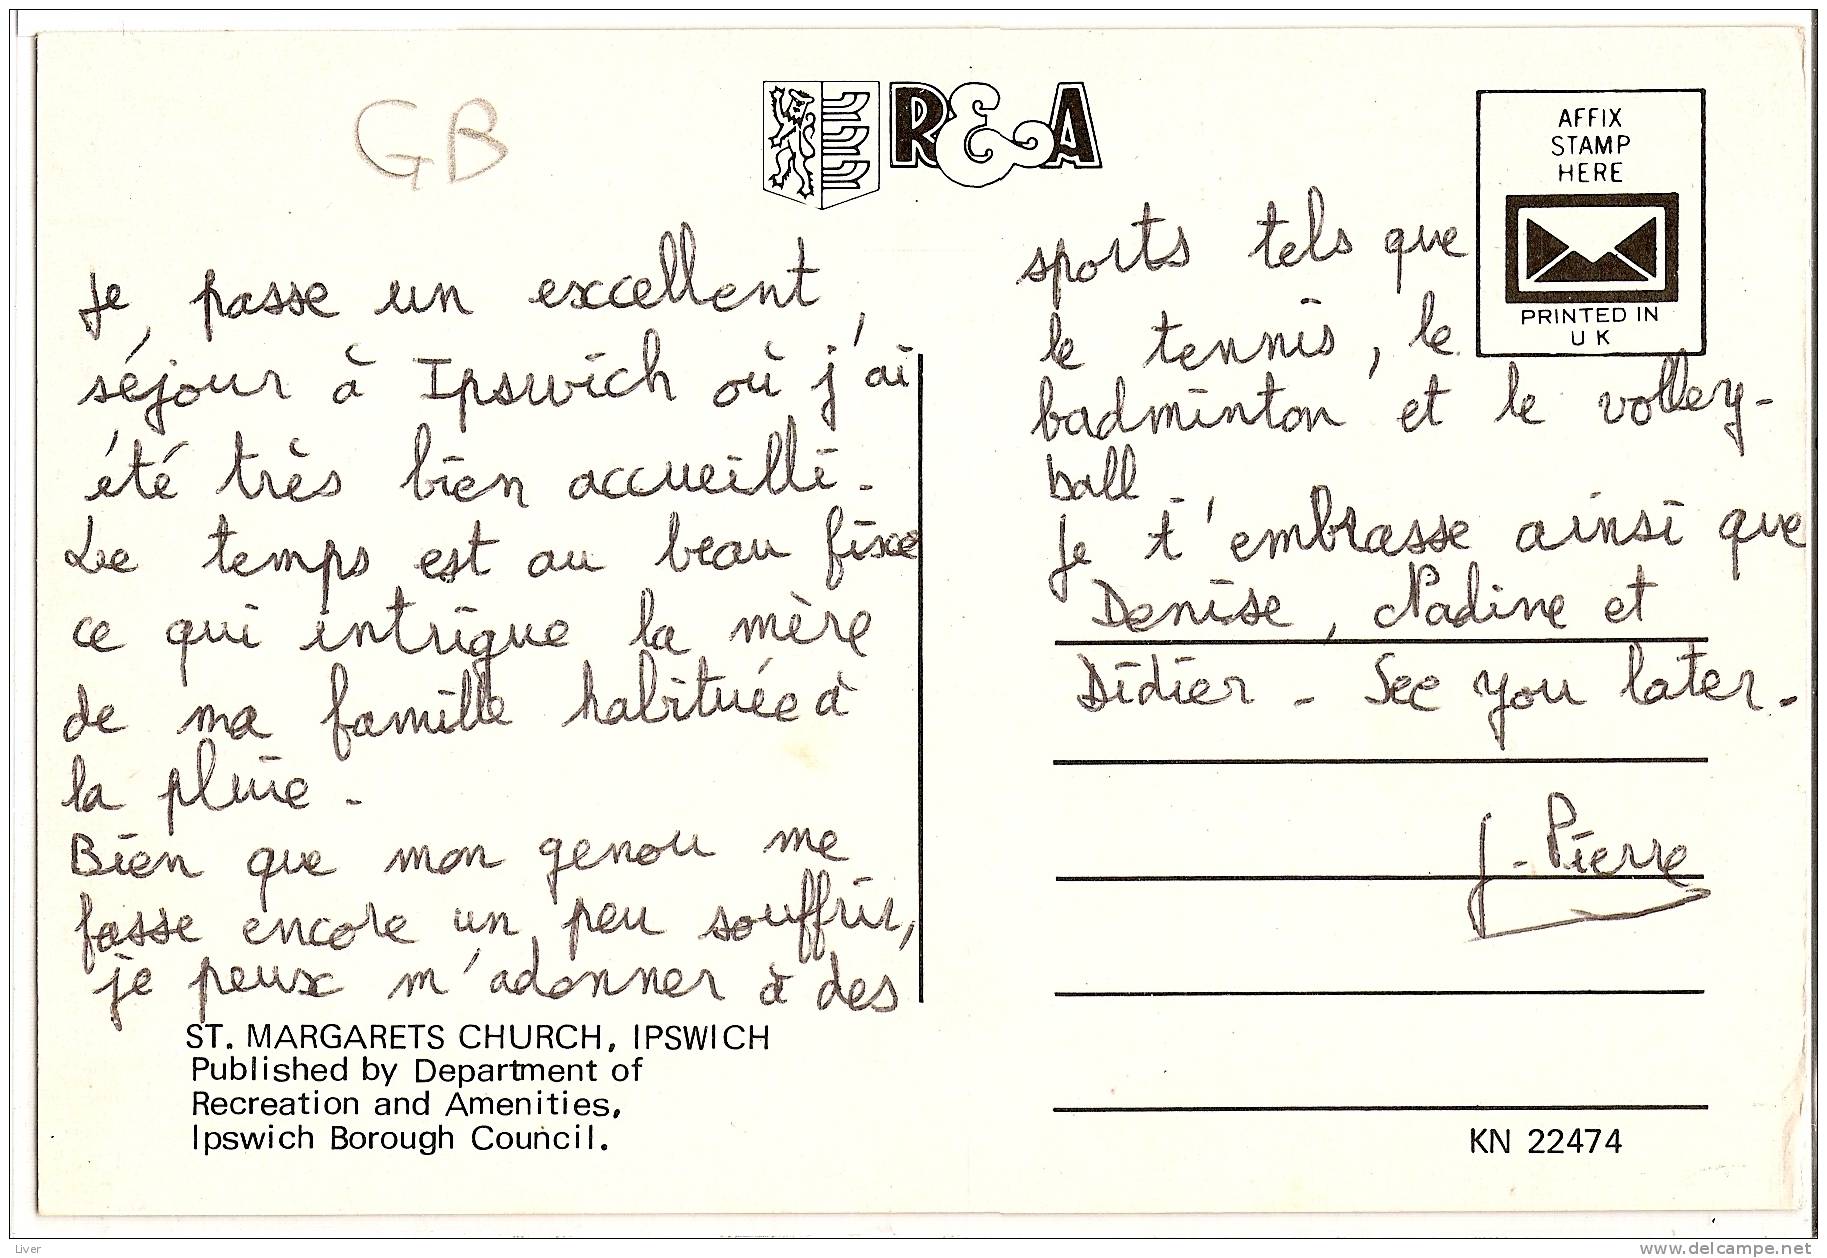 GB
R&A
AFFIX
STAMP
HERE
PRINTED IN
UK
Je passe un excellent
séjour à Ipswich où j'ai
été très bien accueilli.
Le temps est au beau fixe
ce qui intrigue la mère
de ma famille habituée à
la pluie.
Bien que mon genou me
fasse encore un peu souffrir,
je peux m'adonner à des
sports tels que
le tennis, le
badminton et le volley-
ball.
Je t'embrasse ainsi que
Denise, Nadine et
Didier - See you later.
J-Pierre
ST. MARGARETS CHURCH, IPSWICH
Published by Department of
Recreation and Amenities,
Ipswich Borough Council.
KN 22474
Liver
www.delcampe.net